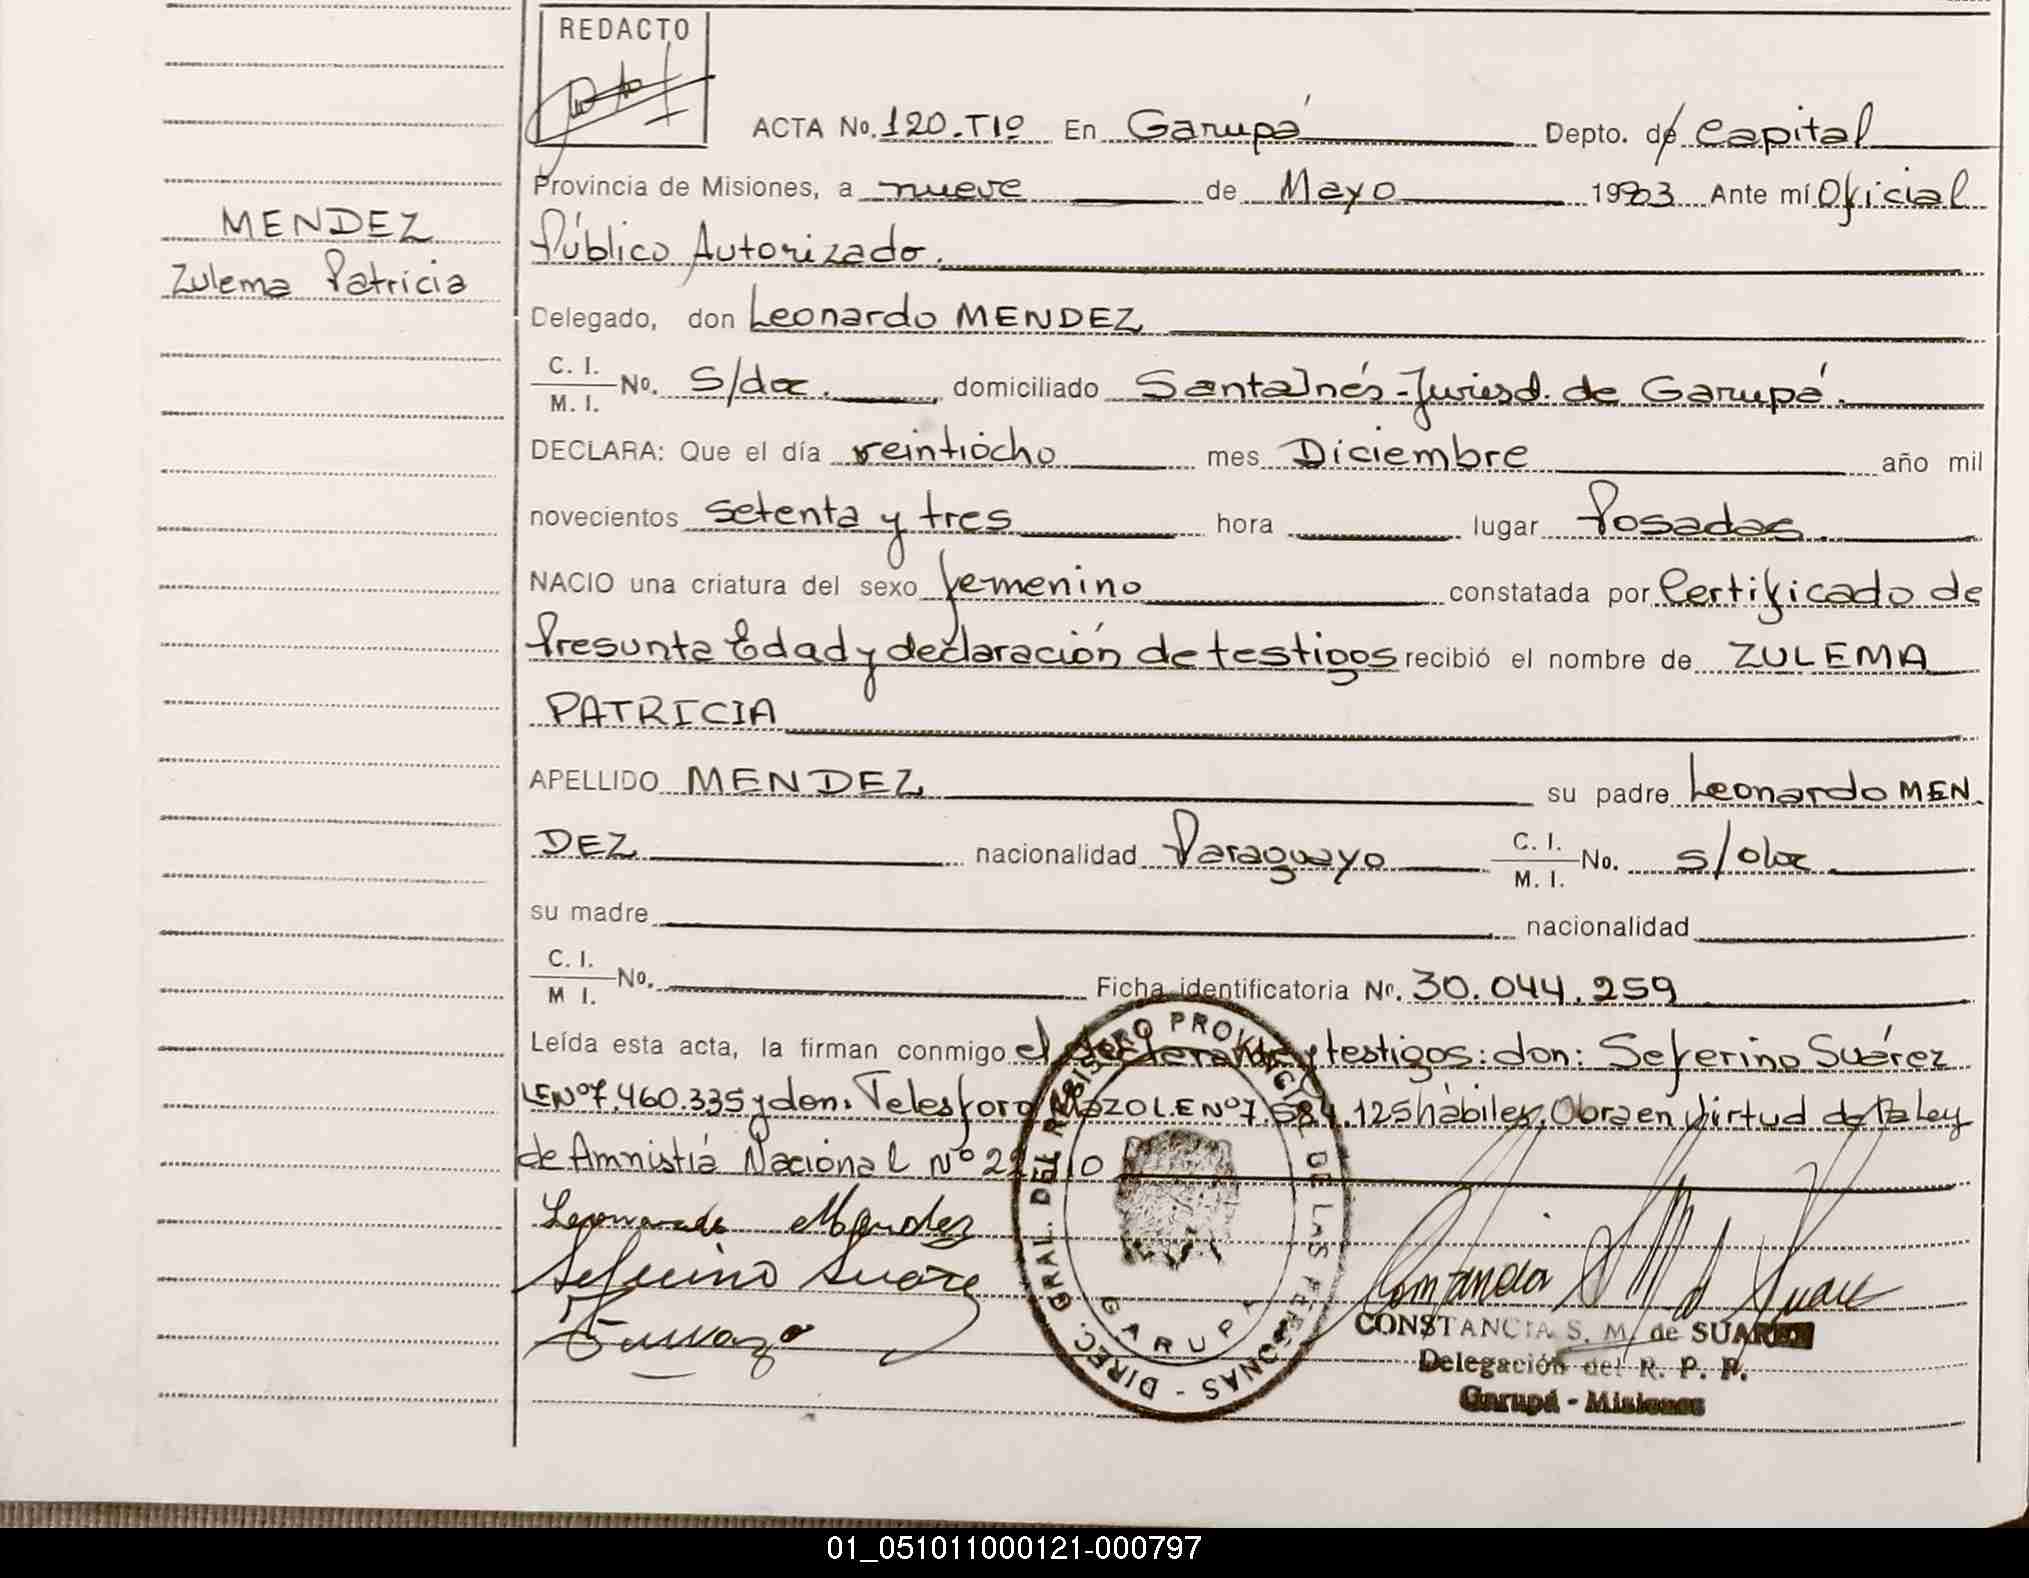 REDACTO
ACTA No. 120.TIº En Garupá Depto. de Capital
Provincia de Misiones, a nueve de Mayo 1983 Ante mí Oficial
Público Autorizado.
MENDEZ
Zulema Patricia
Delegado, don Leonardo MENDEZ
C. I.
M. I. No. S/doc. domiciliado Santa Inés - Jurisd. de Garupá.
DECLARA: Que el día veintiocho mes Diciembre año mil
novecientos setenta y tres hora lugar Posadas.
NACIO una criatura del sexo femenino constatada por Certificado de
Presunta Edad y declaración de testigos recibió el nombre de ZULEMA
PATRICIA
APELLIDO MENDEZ su padre Leonardo MEN
DEZ nacionalidad Paraguayo C. I.
M. I. No. s/doc
su madre nacionalidad
C. I.
M I. No. Ficha identificatoria Nº. 30.044.259
Leída esta acta, la firman conmigo el declarante y testigos: don: Seferino Suárez
LE Nº 7.460.335 y don: Telesforo L.E Nº 7.584.125 hábiles. Obra en virtud de la Ley
de Amnistiá Nacional Nº 22
Leonardo Mendez
Seferino Suarez
DIREC. GRAL. DEL REGISTRO PROVINCIAL DE LAS PERSONAS -
GARUPA
CONSTANCIA S. M. de SUAREZ
Delegación del R. P. P.
Garupá - Misiones
01_051011000121-000797